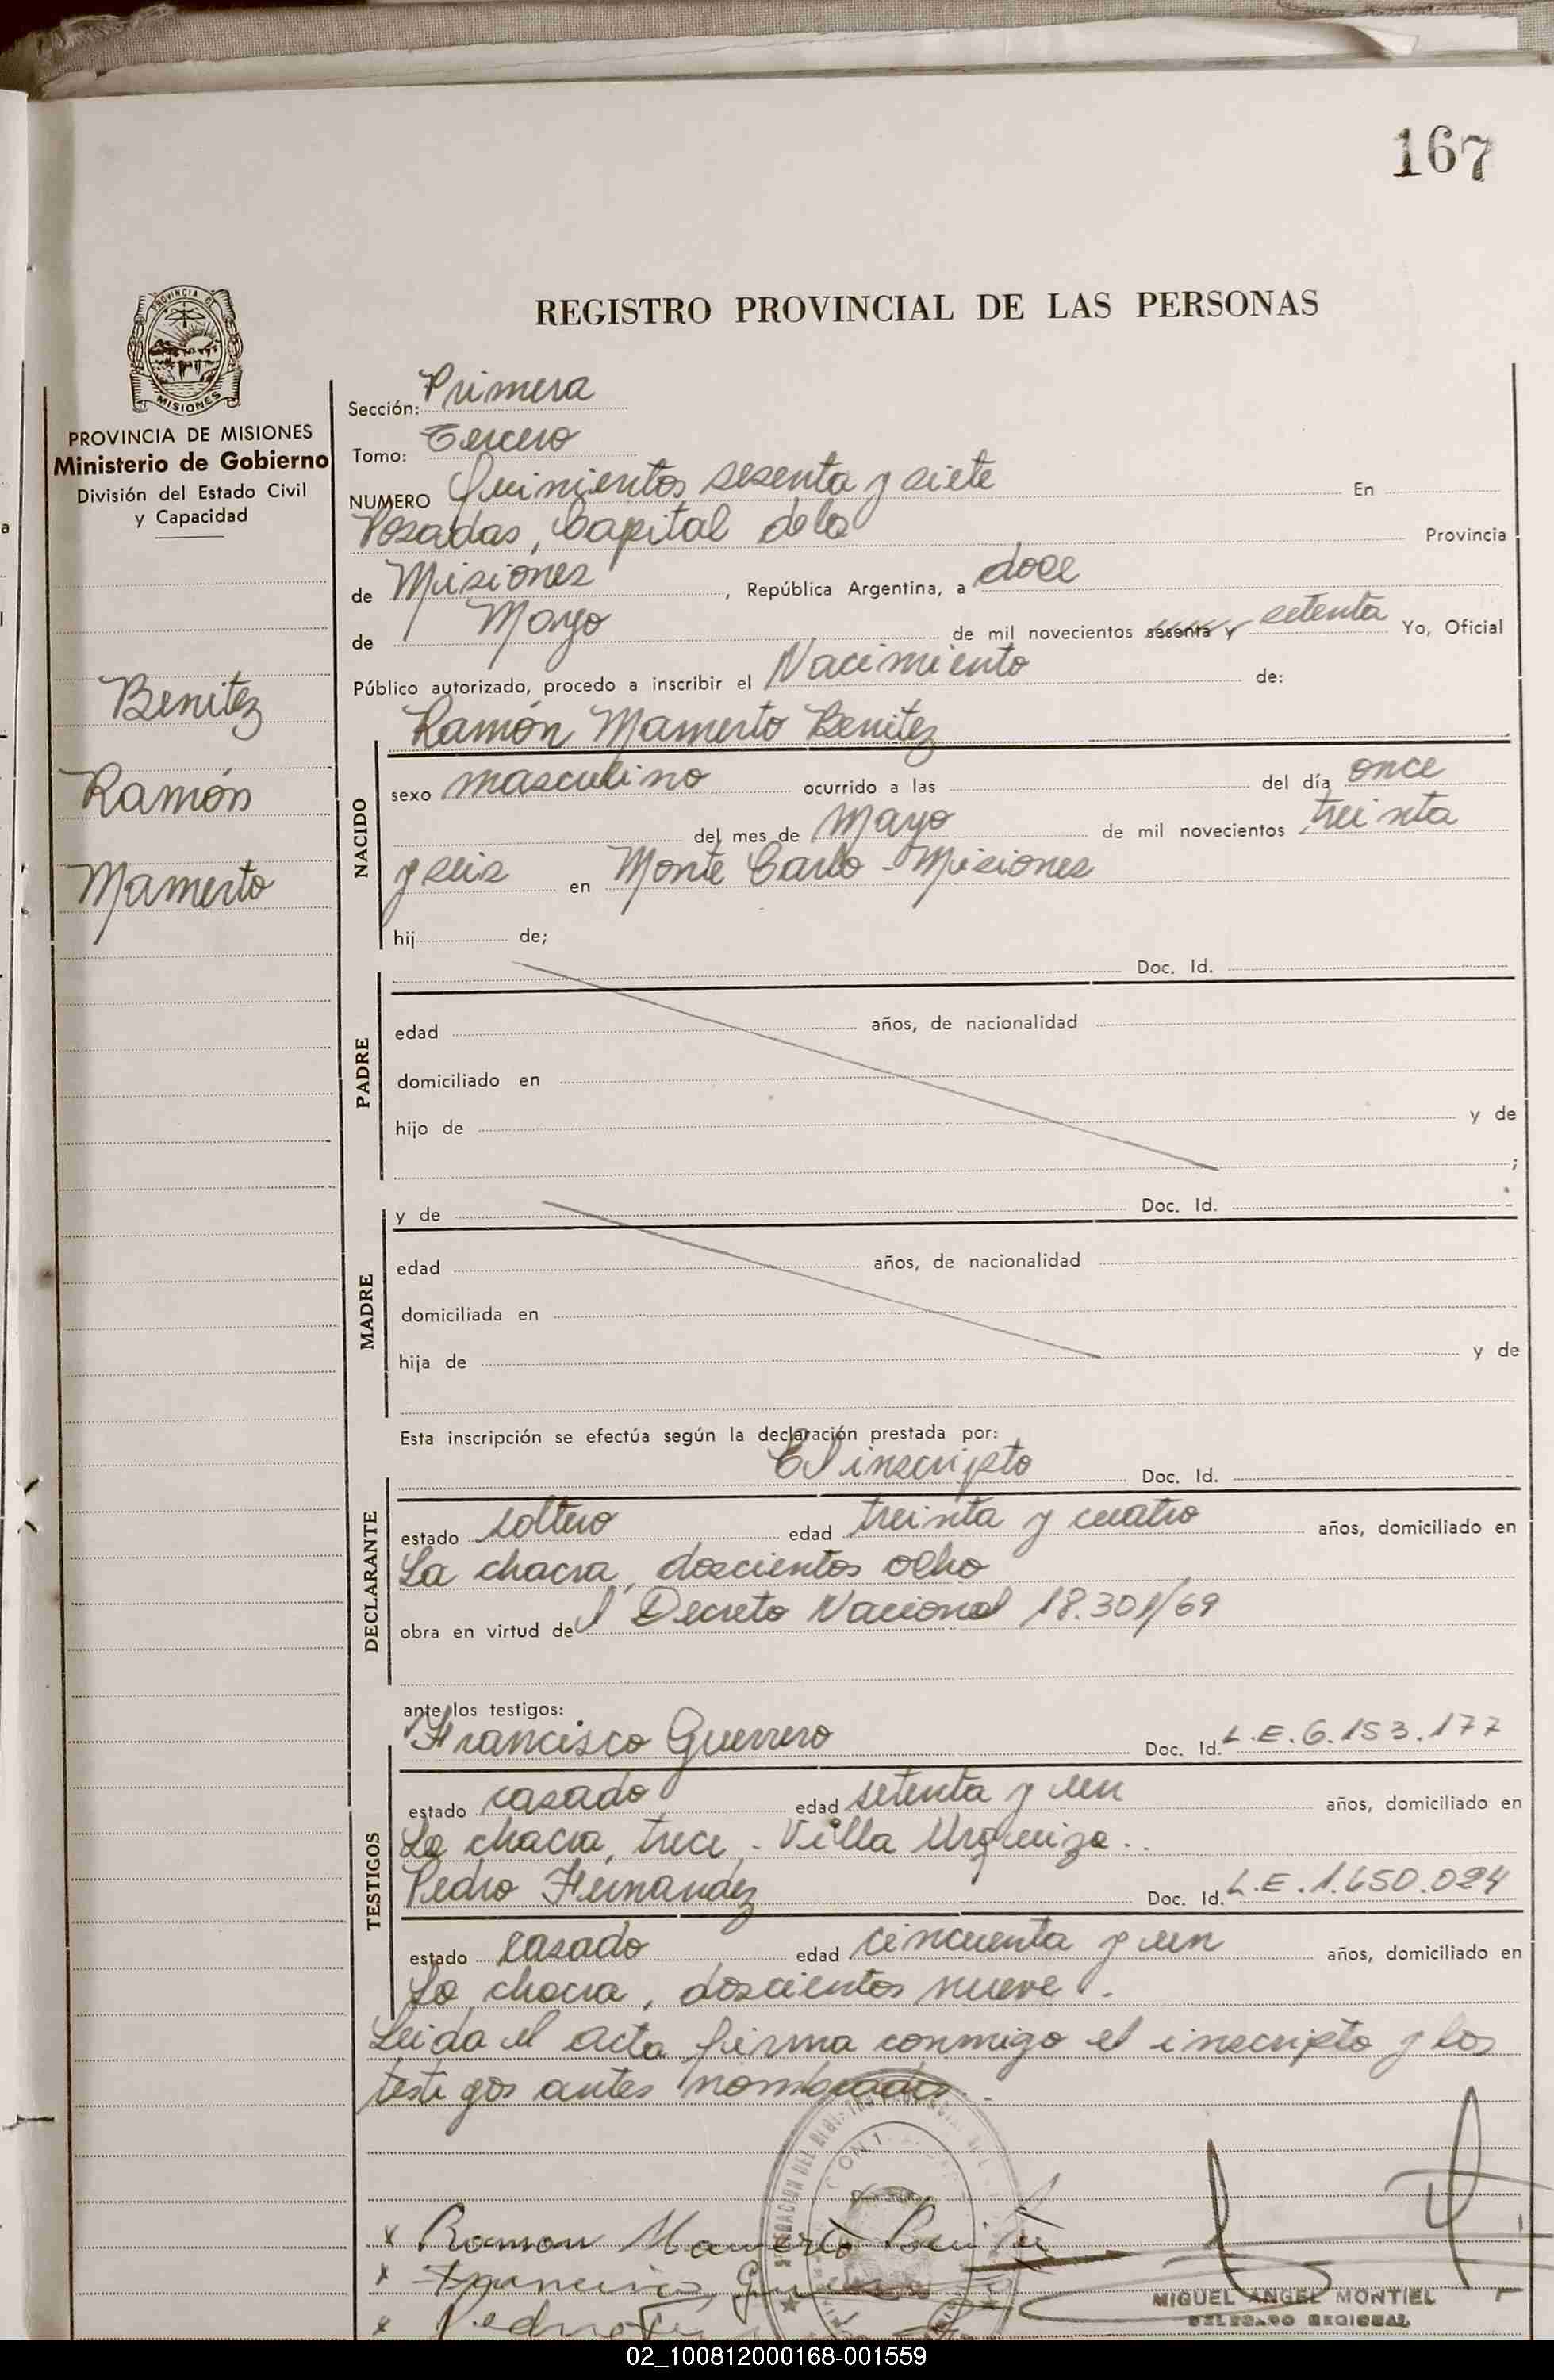 167
PROVINCIA DE MISIONES
PROVINCIA DE MISIONES
Ministerio de Gobierno
División del Estado Civil
y Capacidad
Benitez
Ramón
Mamerto
REGISTRO PROVINCIAL DE LAS PERSONAS
Sección: Primera
Tomo: Tercero
NUMERO Quinientos sesenta y siete En
Posadas, Capital de la Provincia
de Misiones, República Argentina, a doce
de Mayo de mil novecientos sesenta y setenta Yo, Oficial
Público autorizado, procedo a inscribir el Nacimiento de:
Ramón Mamerto Benitez
NACIDO
sexo masculino ocurrido a las del día once
del mes de Mayo de mil novecientos treinta
y seis en Monte Carlo - Misiones
hij de;
PADRE
Doc. Id.
edad años, de nacionalidad
domiciliado en
hijo de y de
;
MADRE
y de Doc. Id.
edad años, de nacionalidad
domiciliada en
hija de y de
Esta inscripción se efectúa según la declaración prestada por:
El inscripto Doc. Id.
DECLARANTE
estado soltero edad treinta y cuatro años, domiciliado en
La chacra, doscientos ocho
obra en virtud del Decreto Nacional 18.301/69
ante los testigos:
TESTIGOS
Francisco Guerrero Doc. Id. L.E. 6.153.177
estado casado edad setenta y un años, domiciliado en
La chacra, trece, - Villa Urquiza.
Pedro Fernandez Doc. Id. L.E. 1.650.024
estado casado edad cincuenta y un años, domiciliado en
La chacra, doscientos nueve.
Leida el acta firma conmigo el inscripto y los
testigos antes nombrados.
x Ramon Mamerto Benitez
x Francisco
x Pedro
MIGUEL ANGEL MONTIEL
DELEGADO REGIONAL
02_100812000168-001559